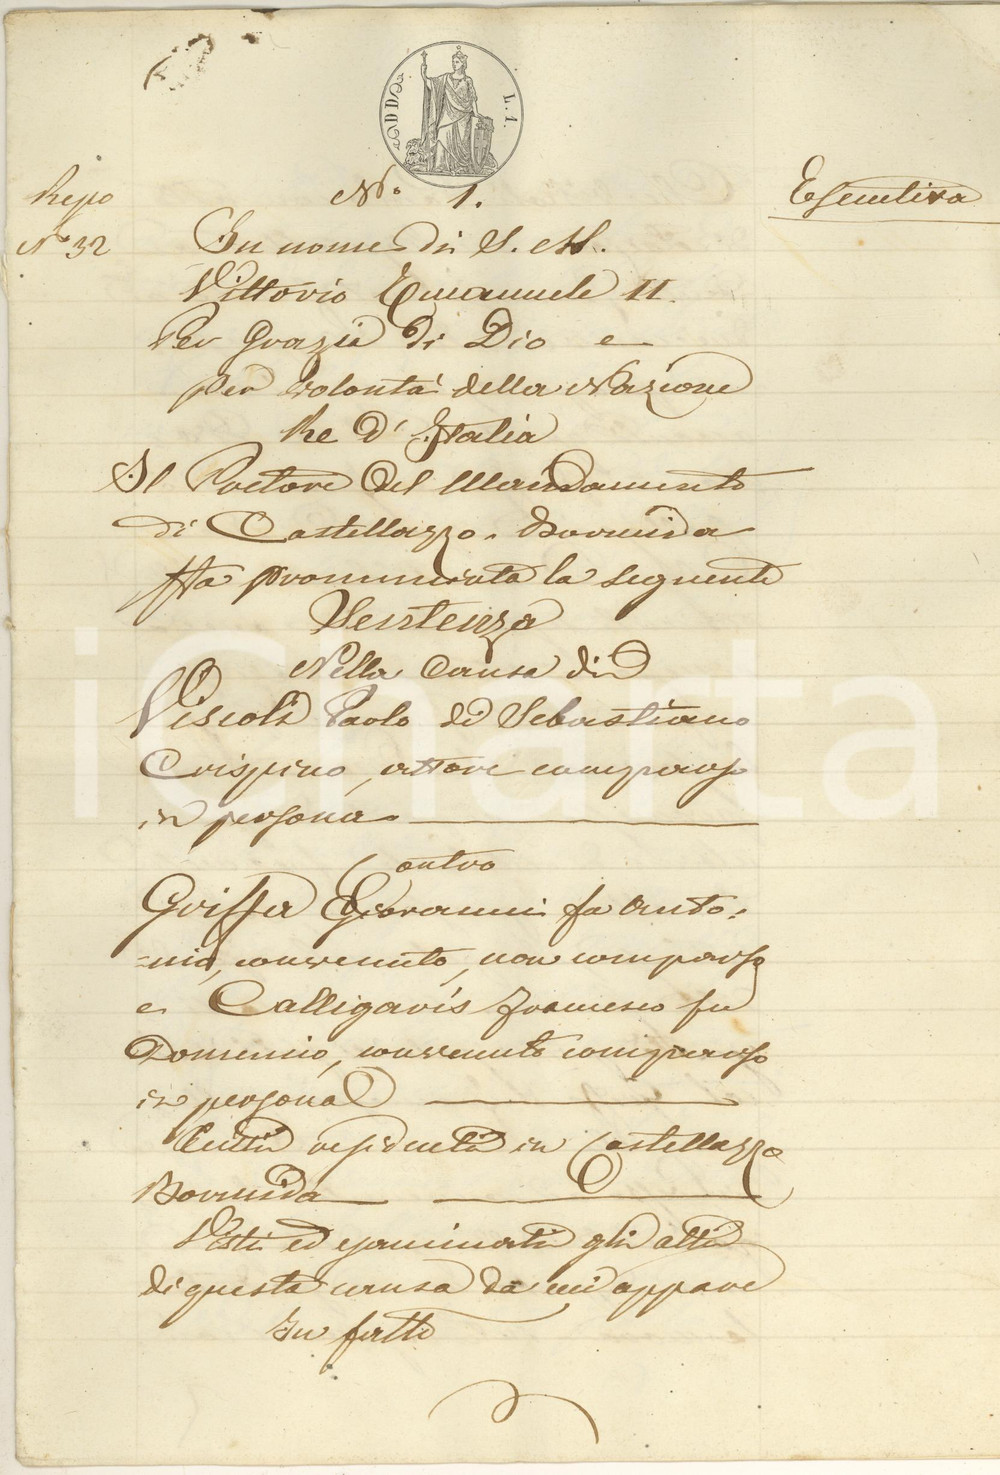 L. 1.
Repo
N.º 32
N.º 1.
Esecutiva
In nome di S. M.
Vittorio Emanuele II.
Per Grazia di Dio e
per volontà della Nazione
Re d'Italia
Il Pretore del Mandamento
di Castellazzo-Bormida
Ha pronunciata la seguente
Sentenza
Nella causa di
Viscoli Paolo di Sebastiano
Crispino, attore comparso
in persona
Contro
Griffa Giovanni fu Anto-
=nio, convenuto, non comparso
e Calligaris Francesco fu
Domenico, convenuto comparso
in persona
Tutti residenti in Castellazzo
Bormida
Visti ed esaminati gli atti
di questa causa da cui appare
In fatto
iCharta